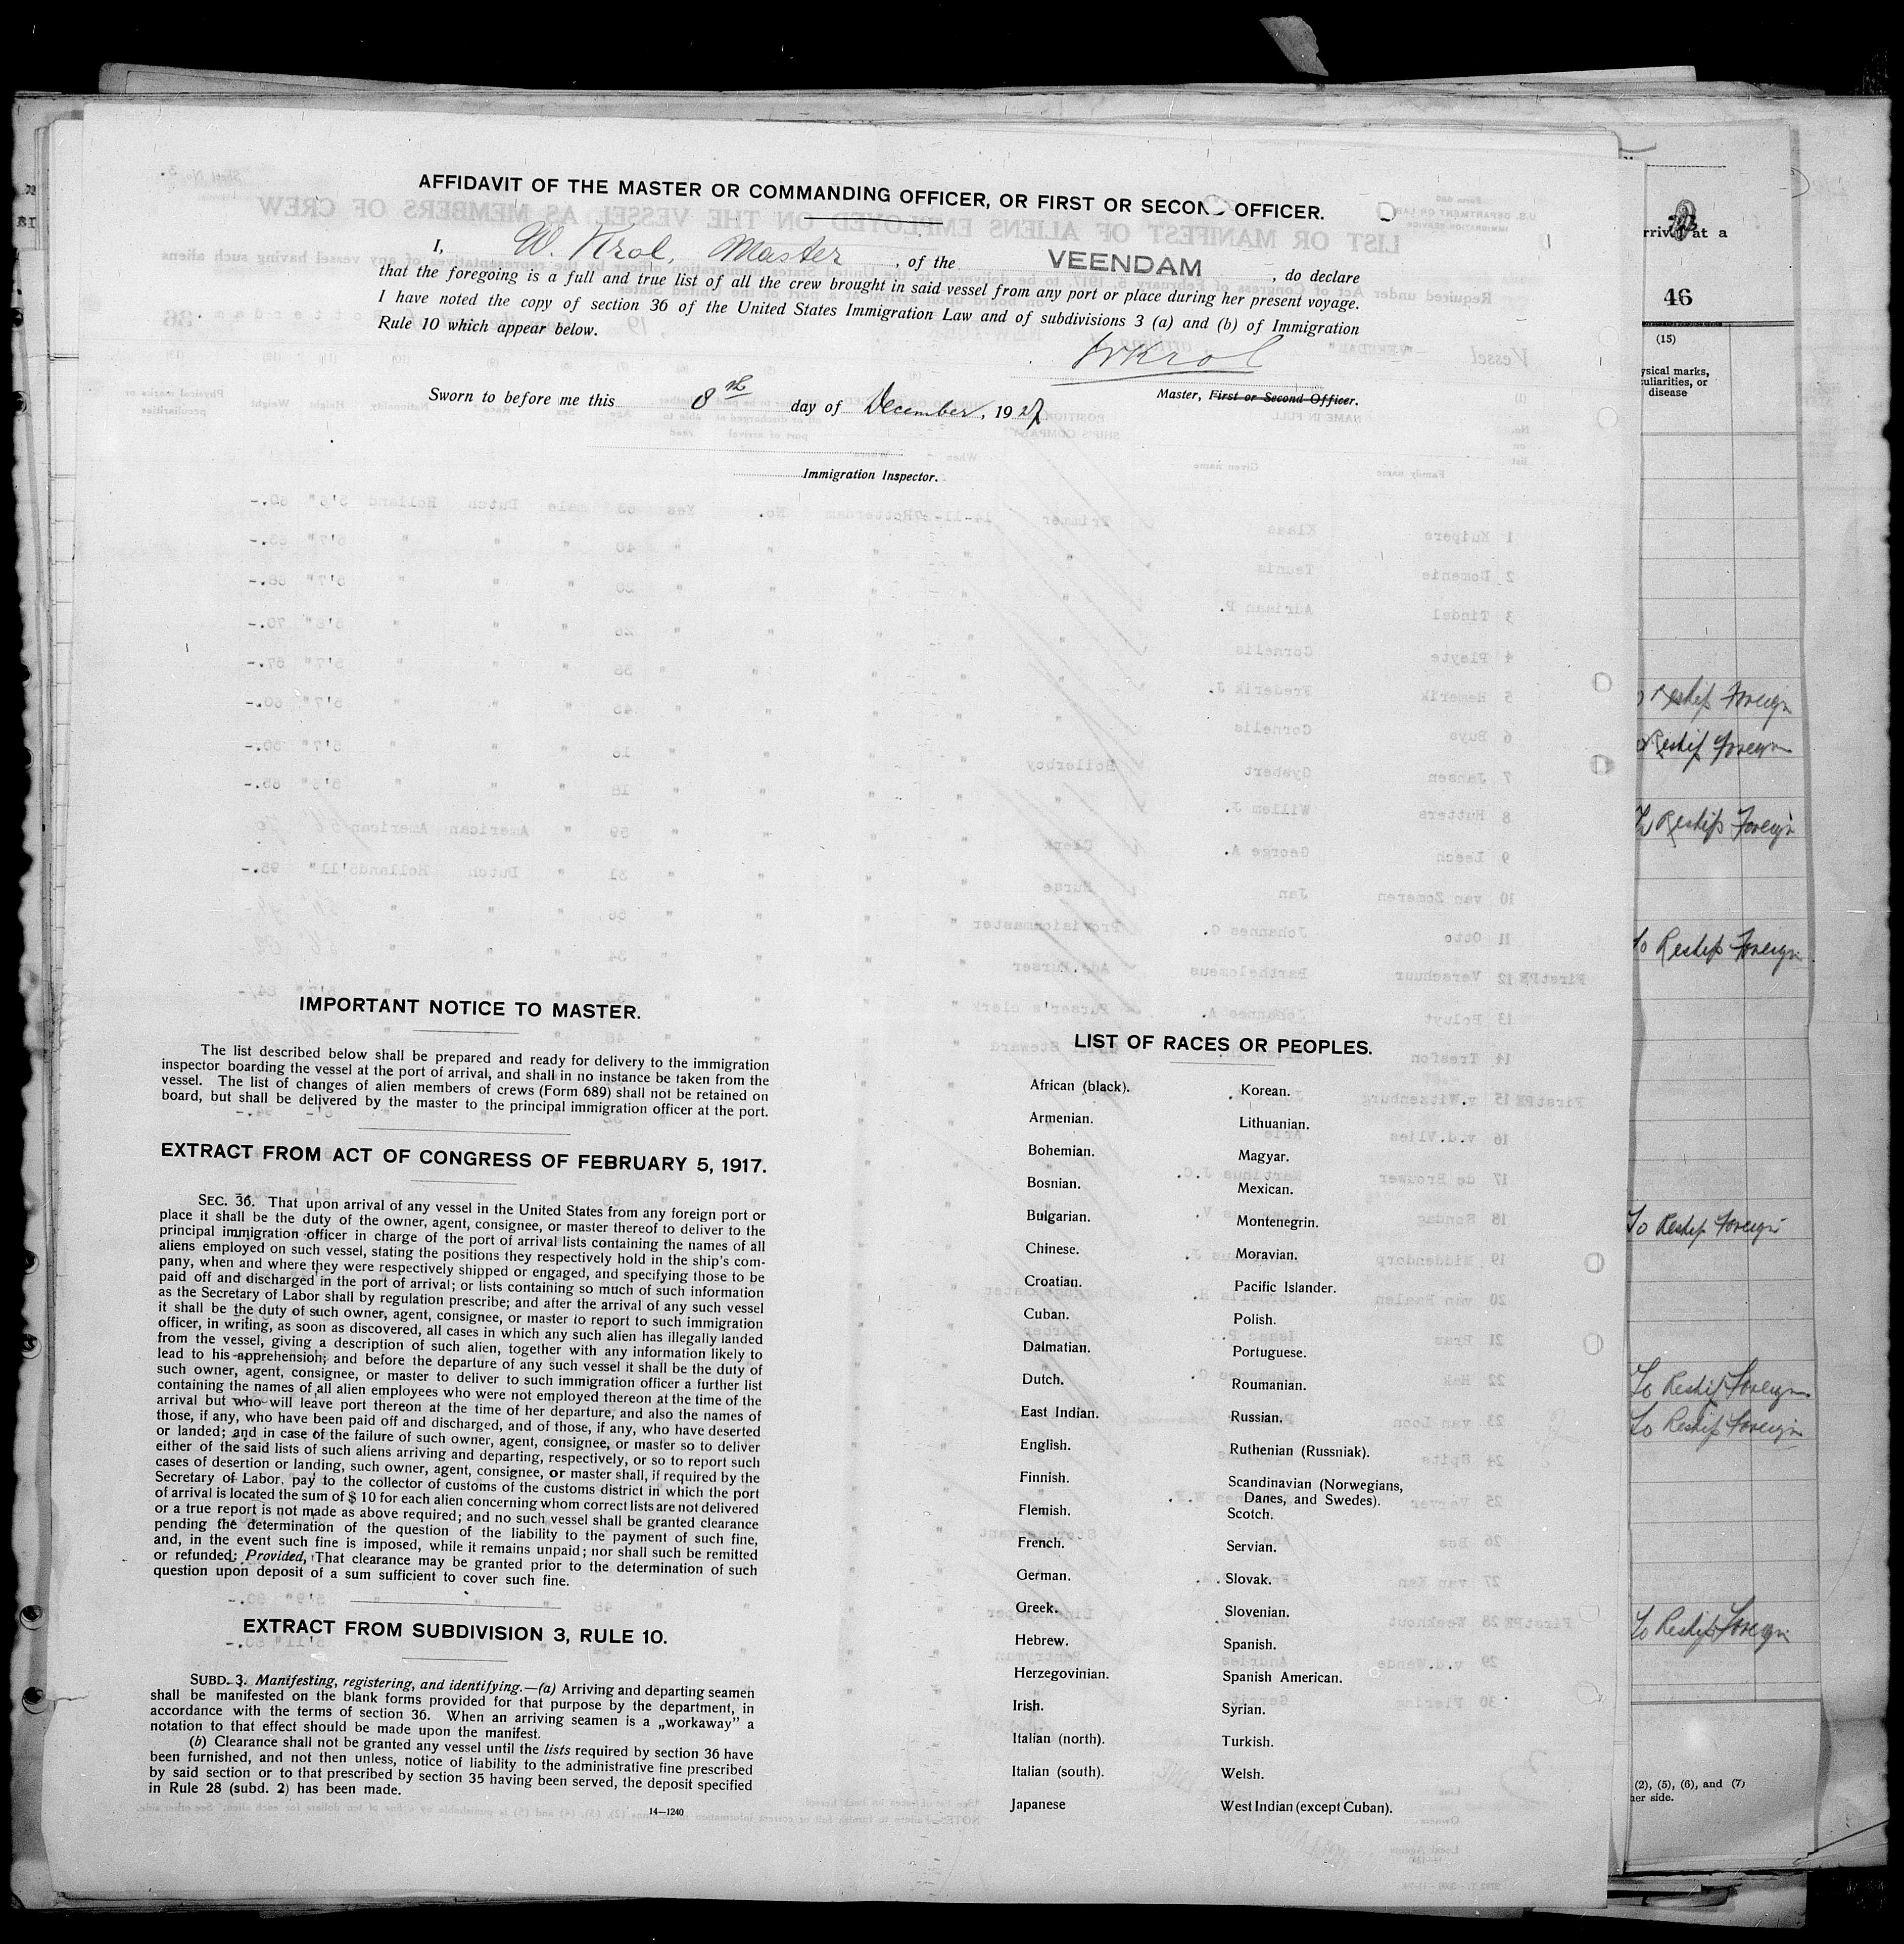 AFFIDAVIT OF THE MASTER OR COMMANDING OFFICER, OR FIRST OR SECOND OFFICER.
I, W. Krol, Master, of the VEENDAM, do declare
that the foregoing is a full and true list of all the crew brought in said vessel from any port or place during her present voyage.
I have noted the copy of section 36 of the United States Immigration Law and of subdivisions 3 (a) and (b) of Immigration
Rule 10 which appear below.
WKrol
Master, First or Second Officer.
Sworn to before me this 8th day of December, 1927
Immigration Inspector.
IMPORTANT NOTICE TO MASTER.
The list described below shall be prepared and ready for delivery to the immigration
inspector boarding the vessel at the port of arrival, and shall in no instance be taken from the
vessel. The list of changes of alien members of crews (Form 689) shall not be retained on
board, but shall be delivered by the master to the principal immigration officer at the port.
EXTRACT FROM ACT OF CONGRESS OF FEBRUARY 5, 1917.
SEC. 36. That upon arrival of any vessel in the United States from any foreign port or
place it shall be the duty of the owner, agent, consignee, or master thereof to deliver to the
principal immigration officer in charge of the port of arrival lists containing the names of all
aliens employed on such vessel, stating the positions they respectively hold in the ship's com-
pany, when and where they were respectively shipped or engaged, and specifying those to be
paid off and discharged in the port of arrival; or lists containing so much of such information
as the Secretary of Labor shall by regulation prescribe; and after the arrival of any such vessel
it shall be the duty of such owner, agent, consignee, or master to report to such immigration
officer, in writing, as soon as discovered, all cases in which any such alien has illegally landed
from the vessel, giving a description of such alien, together with any information likely to
lead to his apprehension; and before the departure of any such vessel it shall be the duty of
such owner, agent, consignee, or master to deliver to such immigration officer a further list
containing the names of all alien employees who were not employed thereon at the time of the
arrival but who will leave port thereon at the time of her departure, and also the names of
those, if any, who have been paid off and discharged, and of those, if any, who have deserted
or landed; and in case of the failure of such owner, agent, consignee, or master so to deliver
either of the said lists of such aliens arriving and departing, respectively, or so to report such
cases of desertion or landing, such owner, agent, consignee, or master shall, if required by the
Secretary of Labor, pay to the collector of customs of the customs district in which the port
of arrival is located the sum of $ 10 for each alien concerning whom correct lists are not delivered
or a true report is not made as above required; and no such vessel shall be granted clearance
pending the determination of the question of the liability to the payment of such fine,
and, in the event such fine is imposed, while it remains unpaid; nor shall such be remitted
or refunded: Provided, That clearance may be granted prior to the determination of such
question upon deposit of a sum sufficient to cover such fine.
EXTRACT FROM SUBDIVISION 3, RULE 10.
SUBD. 3. Manifesting, registering, and identifying.—(a) Arriving and departing seamen
shall be manifested on the blank forms provided for that purpose by the department, in
accordance with the terms of section 36. When an arriving seamen is a „workaway" a
notation to that effect should be made upon the manifest.
(b) Clearance shall not be granted any vessel until the lists required by section 36 have
been furnished, and not then unless, notice of liability to the administrative fine prescribed
by said section or to that prescribed by section 35 having been served, the deposit specified
in Rule 28 (subd. 2) has been made.
14—1240
LIST OF RACES OR PEOPLES.
African (black).
Armenian.
Bohemian.
Bosnian.
Bulgarian.
Chinese.
Croatian.
Cuban.
Dalmatian.
Dutch.
East Indian.
English.
Finnish.
Flemish.
French.
German.
Greek.
Hebrew.
Herzegovinian.
Irish.
Italian (north).
Italian (south).
Japanese
Korean.
Lithuanian.
Magyar.
Mexican.
Montenegrin.
Moravian.
Pacific Islander.
Polish.
Portuguese.
Roumanian.
Russian.
Ruthenian (Russniak).
Scandinavian (Norwegians,
Danes, and Swedes).
Scotch.
Servian.
Slovak.
Slovenian.
Spanish.
Spanish American.
Syrian.
Turkish.
Welsh.
West Indian (except Cuban).
arrival at a
46
(15)
ysical marks,
culiarities, or
disease
Reship Foreign
Reship Foreign
To Reship Foreign
To Reship Foreign
To Reship Foreign
To Reship Foreign
To Reship Foreign
To Reship Foreign
(2), (5), (6), and (7)
her side.